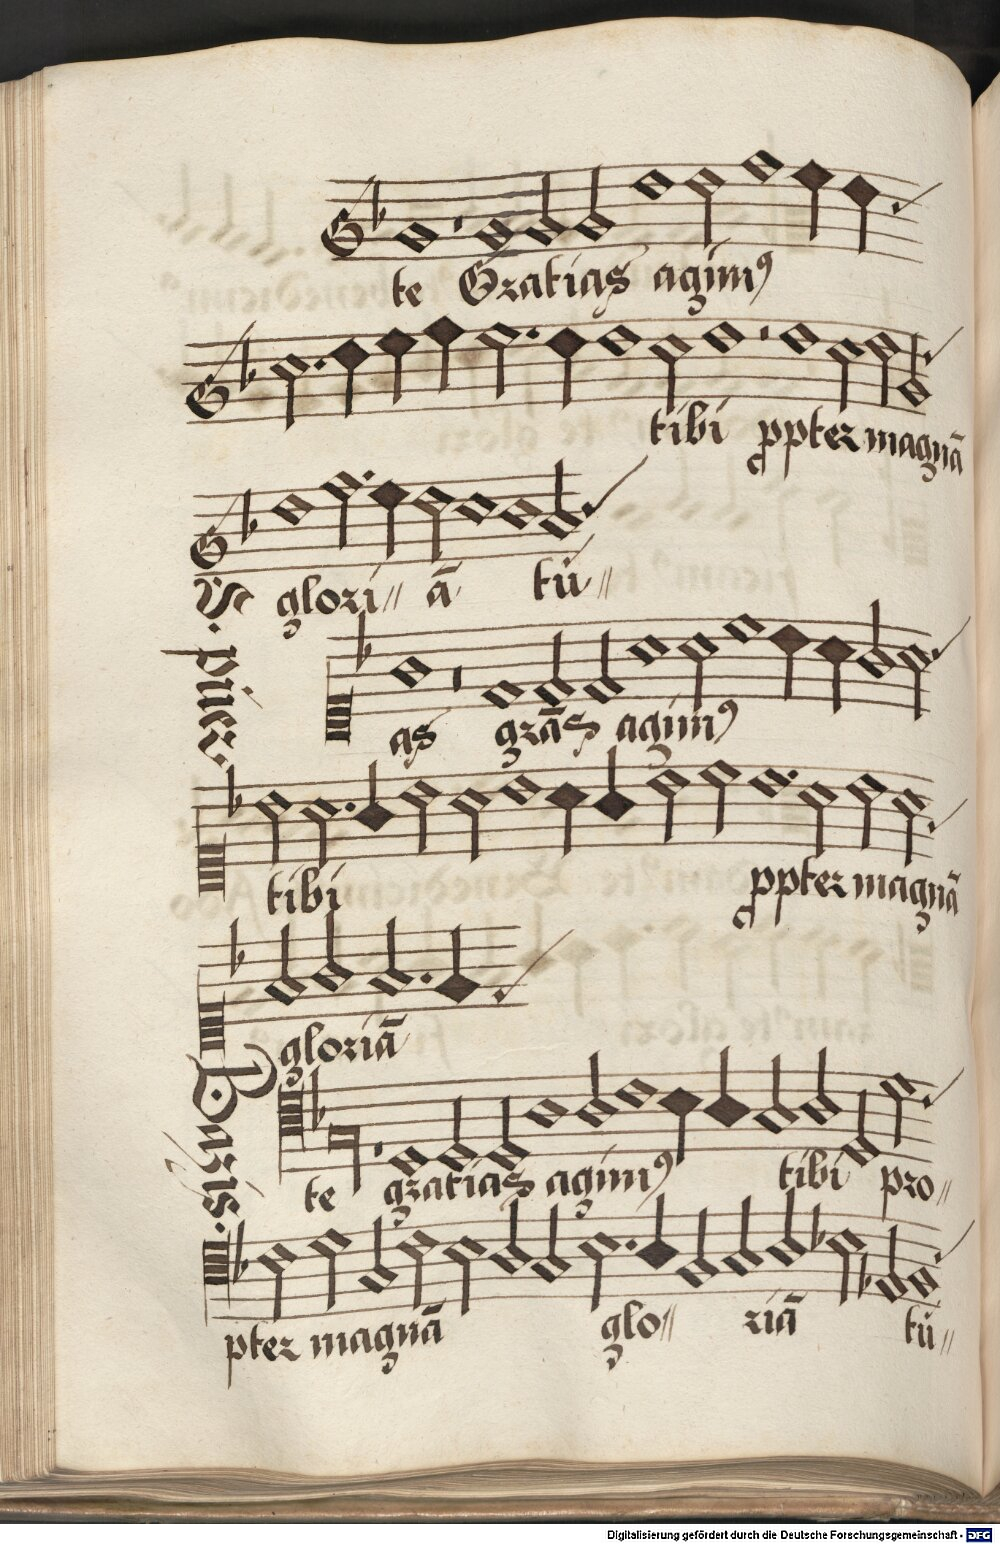 te Gratias agimꝰ
tibi ꝓpter magnā
glori〃 ā tū〃
S. puer.
as grās agimꝰ
tibi ꝓpter magnā
gloriā
Baris.
te gratias agimꝰ tibi pro〃
pter magnā glo〃 riā tū〃
Digitalisierung gefördert durch die Deutsche Forschungsgemeinschaft - DFG